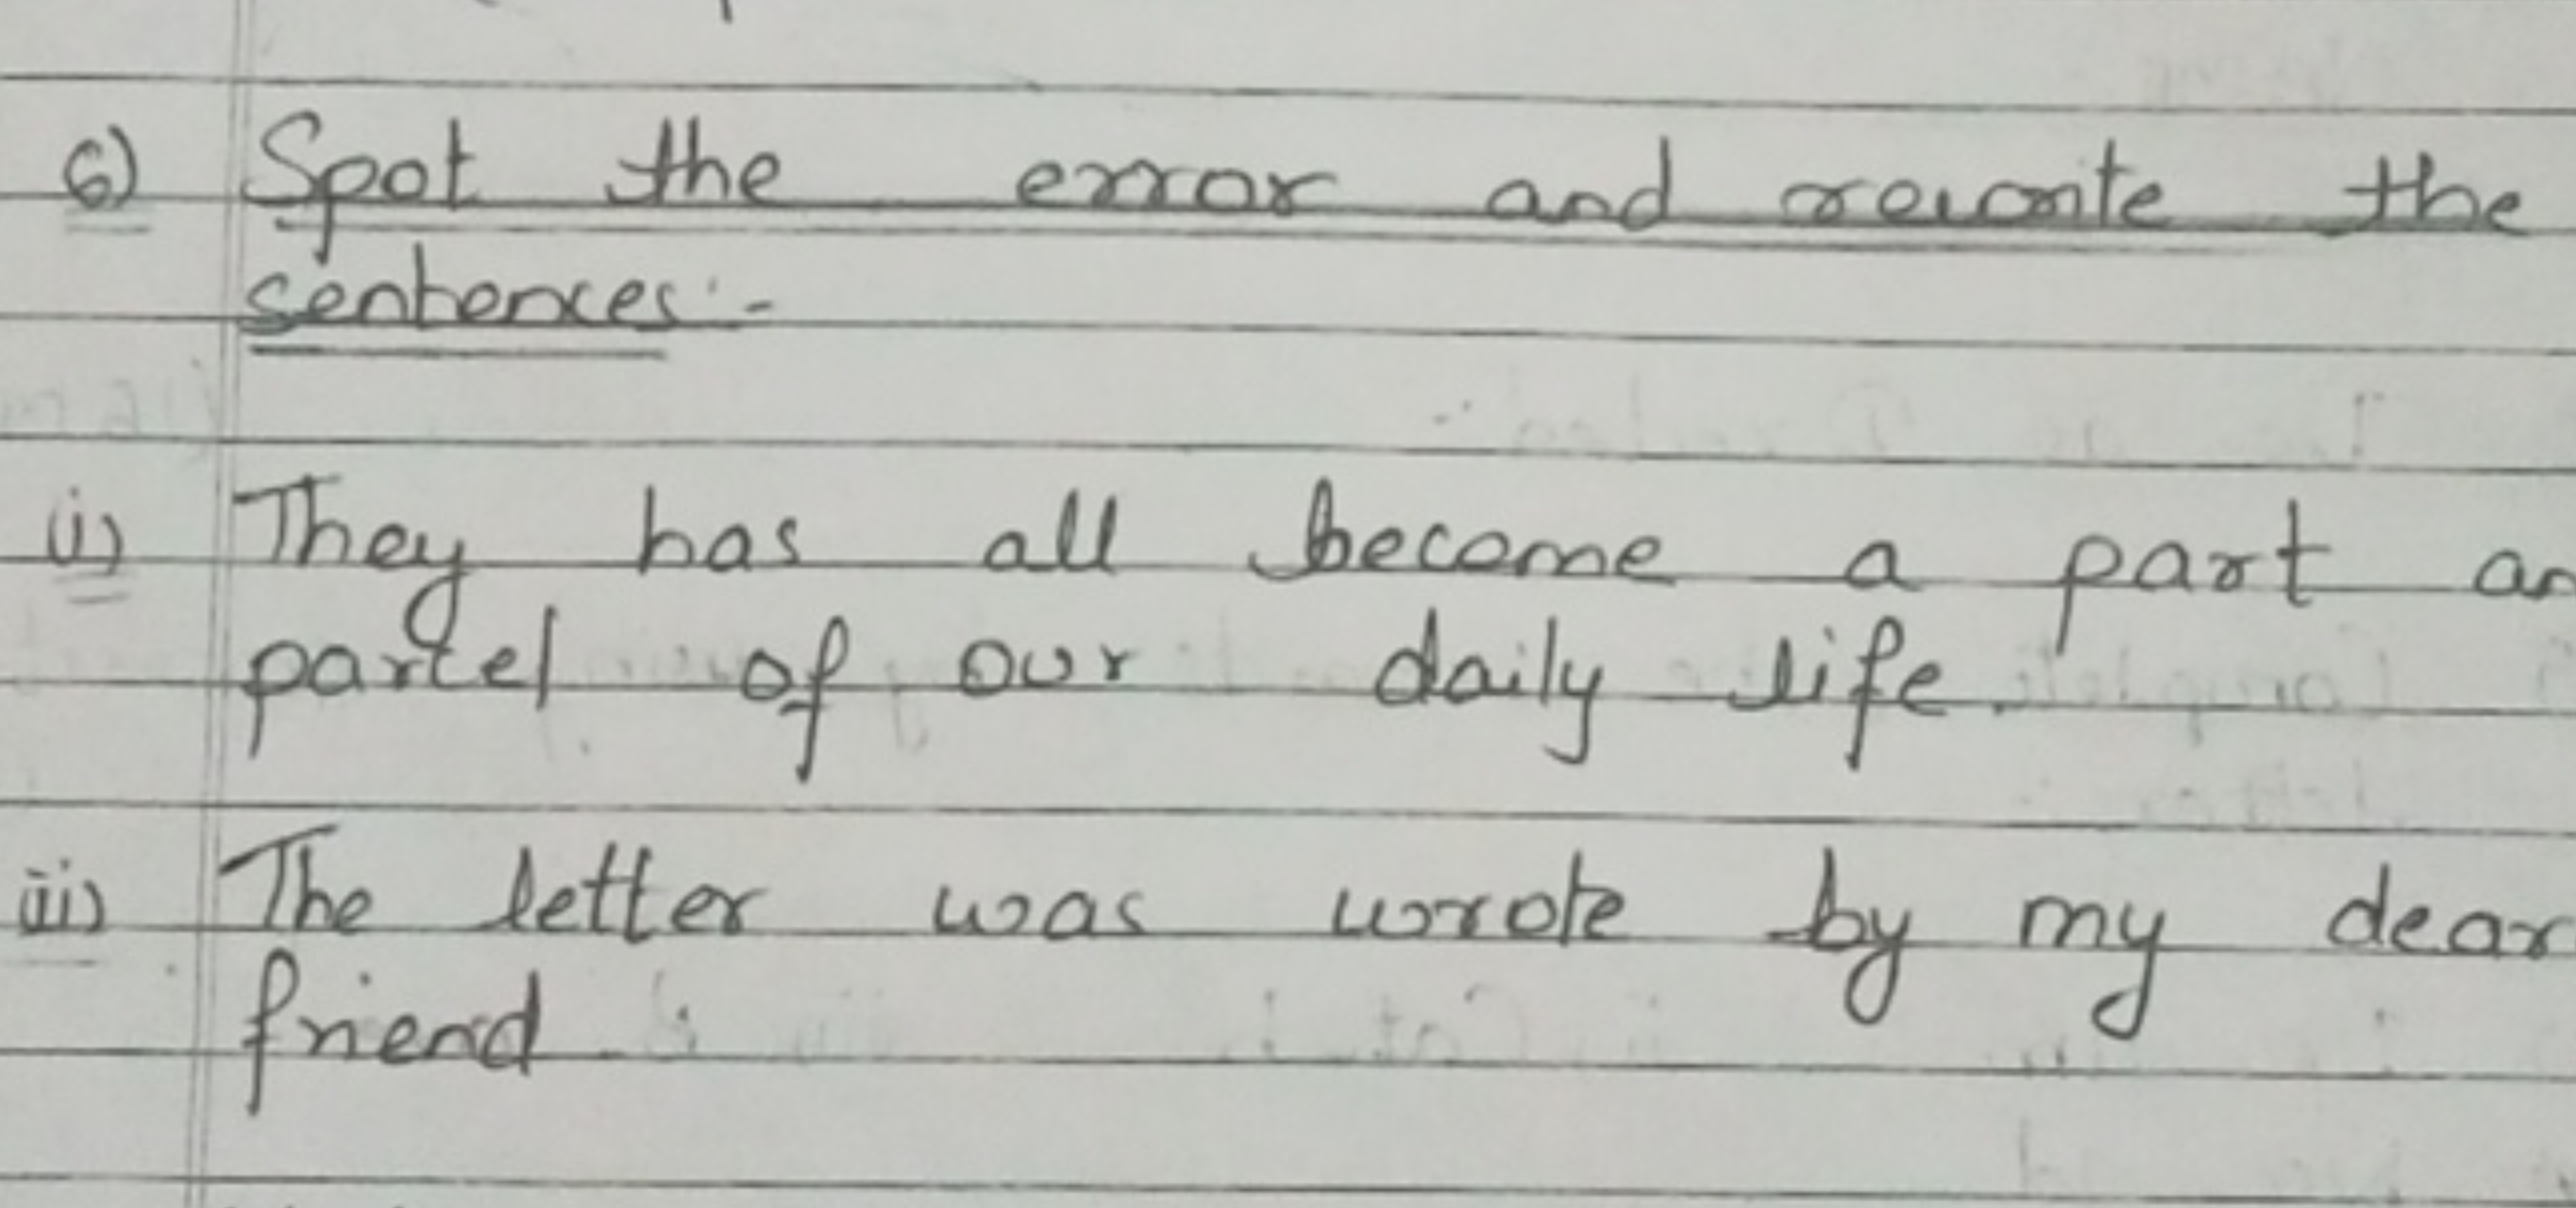 6) Spot the error and rewrite the
sentences:-
i) They has all become a part an
parcel of our daily life.
iii) The letter was wrote by my dear
friend.